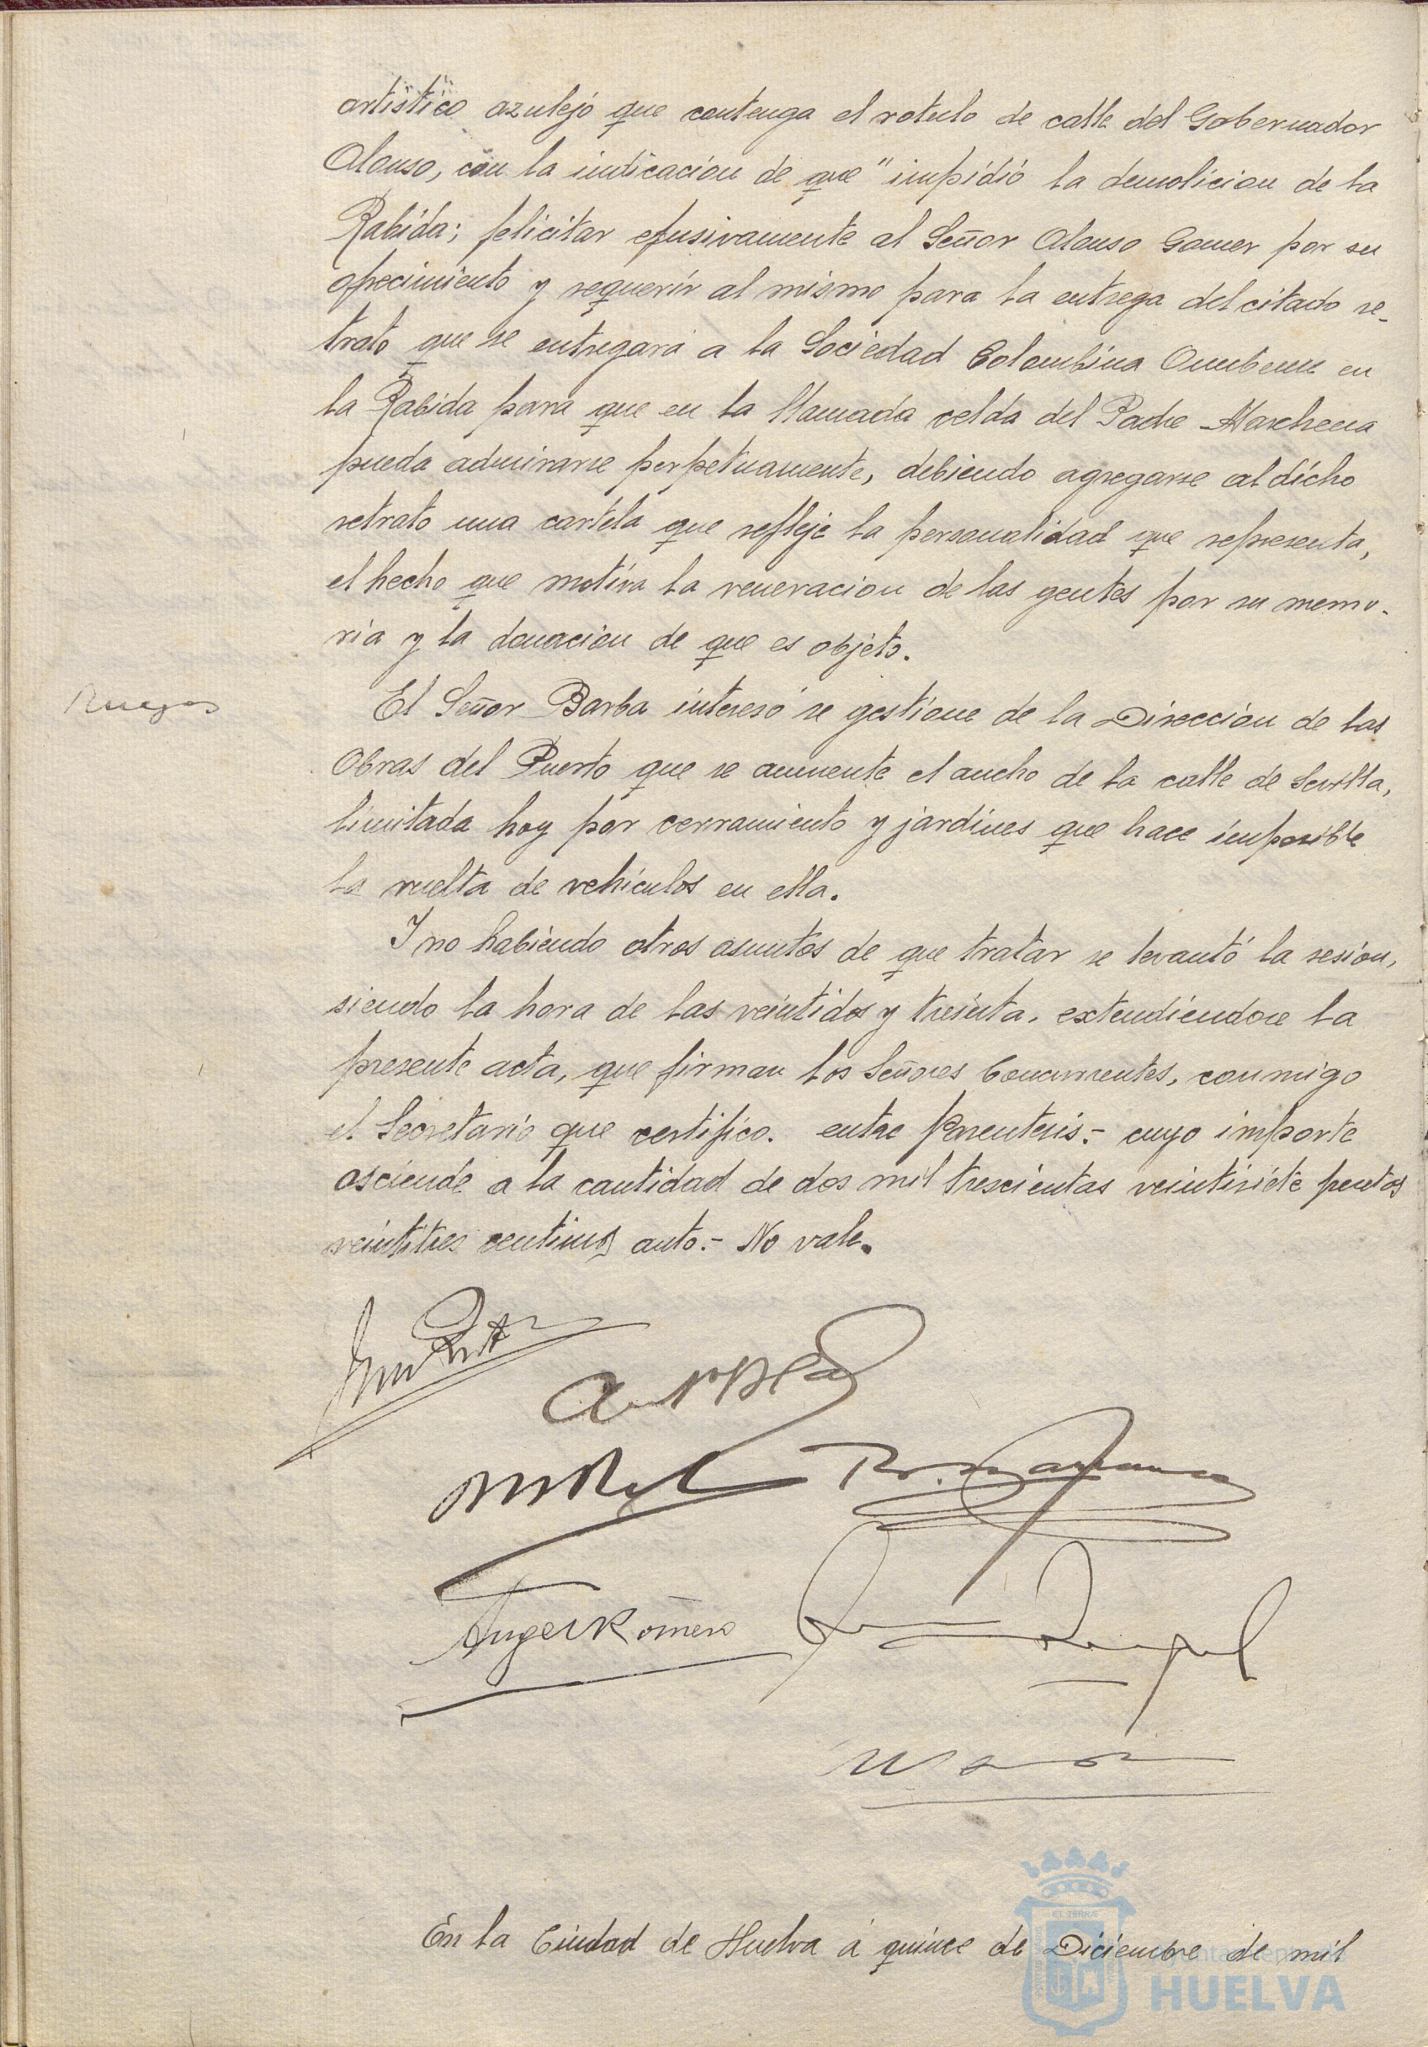 artístico azulejo que contenga el rotulo de calle del Gobernador
Alonso, con la indicacion de que "impidió la demolicion de la
Rabida; felicitar efusivamente al Señor Alonso Gomer por su
ofrecimiento y requerir al mismo para la entrega del citado re-
trato que se entregará a la Sociedad Colombina Onubense en
la Rabida para que en la llamada celda del Padre Marchena
pueda admirarse perpetuamente, debiendo agregarse al dicho
retrato una cartela que refleje la personalidad que representa,
el hecho que motiva la veneracion de las gentes por su memo-
ria y la donacion de que es objeto.
Ruegos
El Señor Barba interesó se gestione de la Direccion de las
Obras del Puerto que se aumente el ancho de la calle de Sevilla,
limitada hoy por cerramiento y jardines que hace imposible
la vuelta de vehiculos en ella.
Y no habiendo otros asuntos de que tratar se levantó la sesion,
siendo la hora de las veintidos y treinta, extendiendose la
presente acta, que firman los Señores Concurrentes, conmigo
el Secretario que certifico. entre Parentesis.- cuyo importe
asciende a la cantidad de dos mil trescientas veintisiete pesetas
veintitres centimos auto.- No vale.
Angel Romero
En la Ciudad de Huelva á quince de Diciembre de mil
HUELVA